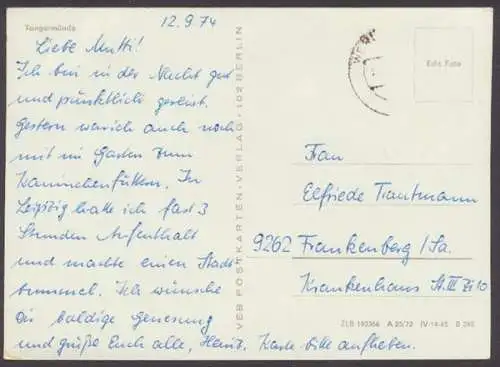 Tangermünde
12.9.74
Liebe Mutti!
Ich bin in der Nacht gut
und pünktlich gereist.
Gestern war ich auch noch
mit im Garten zum
Kaninchenfüttern. In
Leipzig hatte ich fast 3
Stunden Aufenthalt
und machte einen Stadt
bummel. Ich wünsche
Dir baldige Genesung
und grüße Euch alle,
Karte bitte aufheben.
VEB POSTKARTEN-VERLAG · 102 BERLIN
Echt Foto
Frau
Elfriede Trautmann
9262 Frankenberg/Sa.
Krankenhaus St.III Zi 10
IV-14-45